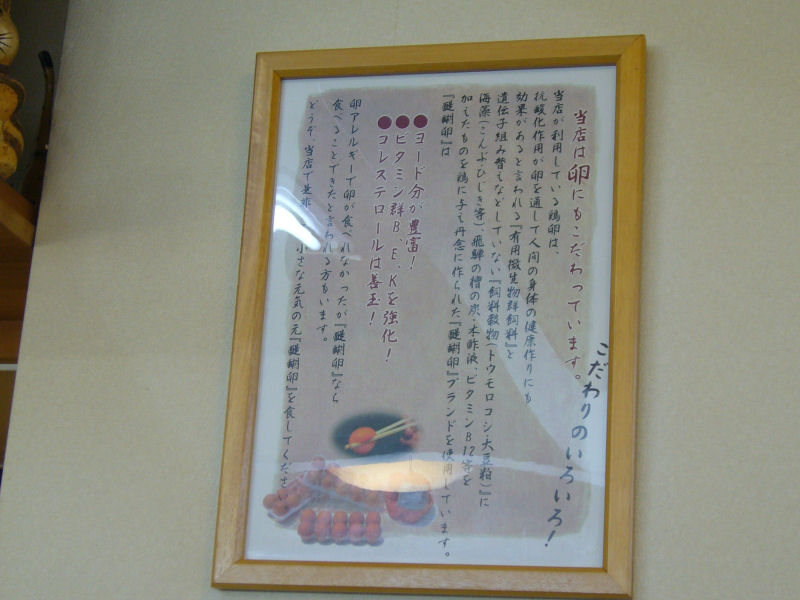 こだわりのいろいろ!
当店は卵にもこだわっています。
当店が利用している鶏卵は、
抗酸化作用が卵を通して人間の身体の健康作りにも
効果があると言われる『有用微生物群飼料』と
遺伝子組み替えなどしていない『飼料穀物(トウモロコシ・大豆粕)』に
海藻(こんぶ・ひじき等)、飛騨の檜の炭・木酢液、ビタミンB12等を
加えたものを鶏に与え丹念に作られた『醍醐卵』ブランドを使用しています。
『醍醐卵』は
●ヨード分が豊富!
●ビタミン群B、E、Kを強化!
●コレステロールは善玉!
卵アレルギーで卵が食べれなかったが『醍醐卵』なら
食べることできたと言われる方もいます。
どうぞ、当店で是非 小さな元気の元『醍醐卵』を食してください